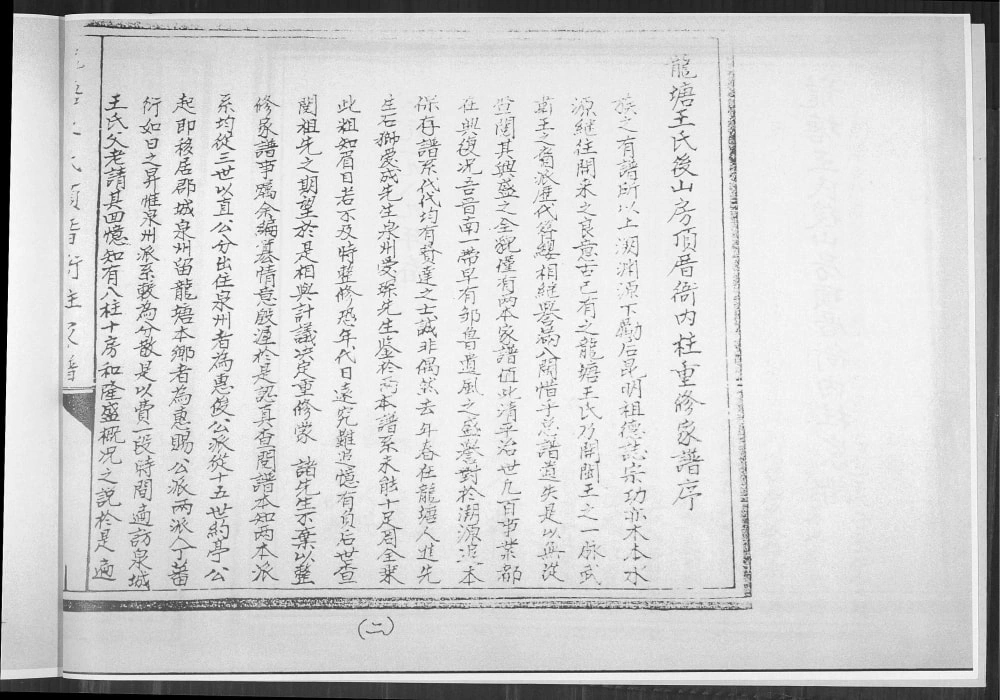 龍塘王氏後山房頂厝衙內柱重修家譜序
族之有譜所以上溯淵源下勵后昆明祖德誌宗功亦木本水
源繼往開來之良意古已有之龍塘王氏乃開閩王之一脉武
肅王之裔派歷代簪纓相繼譽滿八閩惜乎舊譜遺失是以無從
查閱其興盛之全貌僅有兩本家譜值此清平治世凡百事業都
在興復况吾晉南一帶早有鄒魯遺風之盛譽對於溯源追本
保存譜系代代均有賢達之士誠非偶然去年春在龍塘人進先
生石獅愛成先生泉州受琛先生鑒於両本譜系未能十足周全來
此粗知眉目若不及時整修恐年代日遠究難追憶有負后世查
閱祖先之期望於是相與計議決定重修蒙 諸先生不棄以整
修家譜事囑余編纂情意殷渥於是認真查閱譜本知两本派
系均從三世以直公分出住泉州者為惠俊公派從十五世約亭公
起即移居郡城泉州留龍塘本鄉者為惠賜公派两派今蕃
衍如日之昇惟泉州派系較為分散是以費一段時間適訪泉城
王氏父老請其回憶知有八柱十房和隆盛概况之說於是適
氏頂厝衙柱家譜
(二)